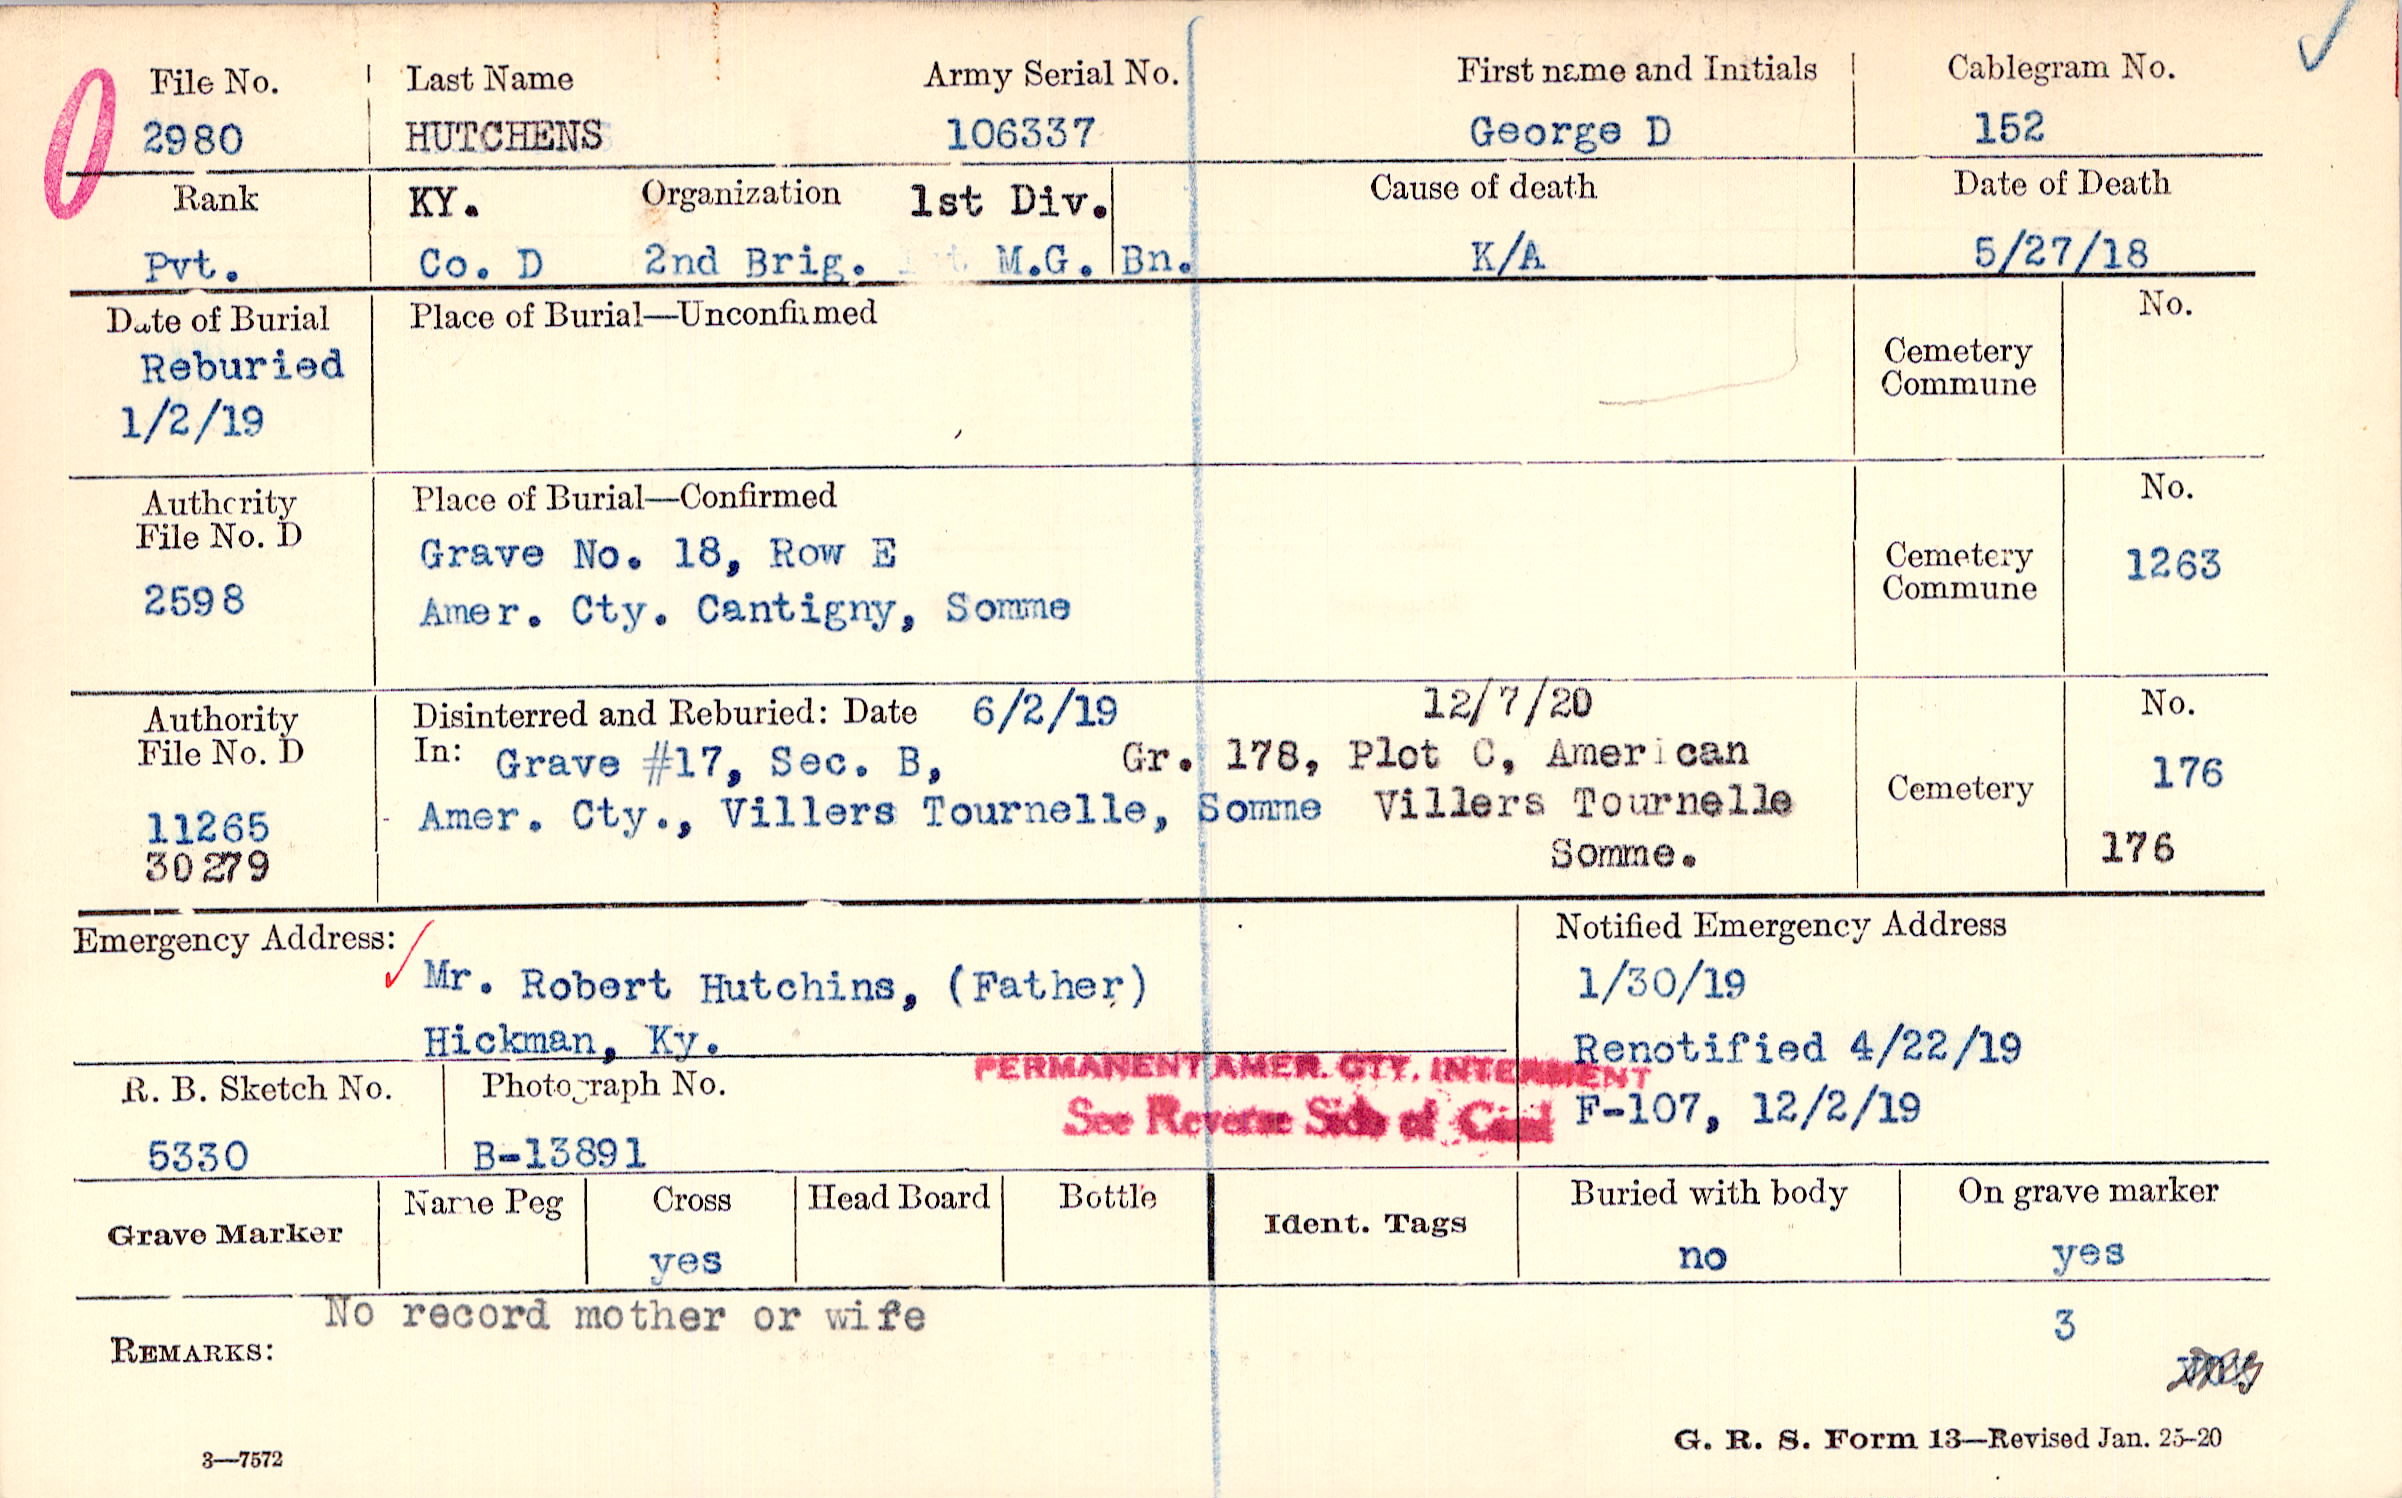 File No. Last Name Army Serial No. First name and Initials Cablegram No.
2980 HUTCHENS 106337 George D 152
Rank KY. Organization 1st Div. Cause of death Date of Death
Pvt. Co. D 2nd Brig. M.G. Bn. K/A 5/27/18
Date of Burial Place of Burial—Unconfirmed No.
Reburied
1/2/19
Cemetery
Commune
Authority Place of Burial—Confirmed No.
File No. D
Grave No. 18, Row E
2598
Amer. Cty. Cantigny, Somme
Cemetery
Commune
1263
Authority Disinterred and Reburied: Date 6/2/19 12/7/20 No.
File No. D In: Grave #17, Sec. B, Gr. 178, Plot C, American
Cemetery 176
11265 Amer. Cty., Villers Tournelle, Somme Villers Tournelle
30279 Somme. 176
Emergency Address: Notified Emergency Address
Mr. Robert Hutchins, (Father) 1/30/19
Hickman, Ky. Renotified 4/22/19
PERMANENT AMER. CTY. INTERMENT
R. B. Sketch No. Photograph No. See Reverse Side of Card F-107, 12/2/19
5330 B-13891
Grave Marker Name Peg Cross Head Board Bottle Ident. Tags Buried with body On grave marker
yes no yes
No record mother or wife 3
REMARKS:
3—7572 G. R. S. Form 13—Revised Jan. 25-20